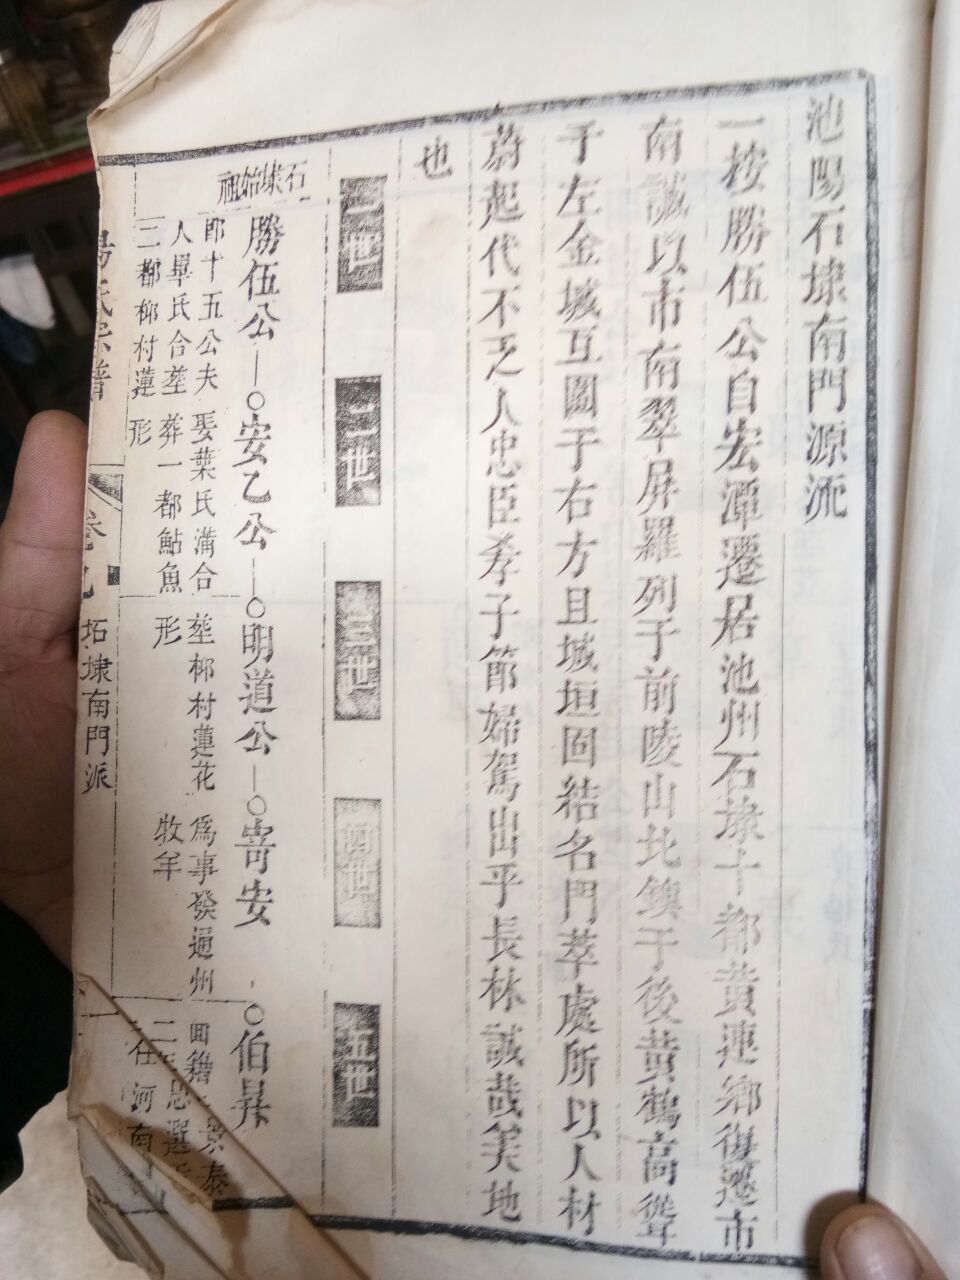 池陽石埭南門源流
一按勝伍公自宏潭遷居池州石埭十都黄連鄉復遷市
南誠以市南翠屏羅列于前陵山北鎮于後黄鶴高聳
于左金城互圍于右方且城垣固結名門萃處所以人材
蔚起代不乏人忠臣孝子節婦駕出乎長林誠哉美地
也
一世
二世
三世
四世
五世
石埭始祖
勝伍公
安乙公
明道公
嵜安
伯昇
郎十五公夫
人畢氏合塟
二都栁村蓮
形
娶葉氏蒲合
葬一都鮎魚
形
塟栁村蓮花
爲事發通州
牧羊
回籍 景泰
二 選
任河南
氏宗譜
卷之九
石埭南門派